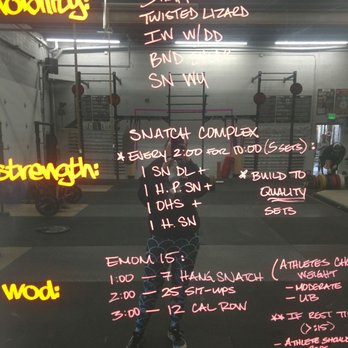 mobility:
TWISTED LIZARD
IW W/DD
BND
SN WU
strength:
SNATCH COMPLEX
* EVERY 2:00 FOR 10:00 (5 SETS):
1 SN DL +
1 H.P. SN +
1 OHS +
1 H. SN
* BUILD TO
QUALITY
SETS
wod:
EMOM 15:
1:00 — 7 HANG SNATCH
2:00 — 25 SIT-UPS
3:00 — 12 CAL ROW
(ATHLETES CHO
WEIGHT
- MODERATE
- UB
** IF REST TI
(>:15)
- ATHLETE SHOUL